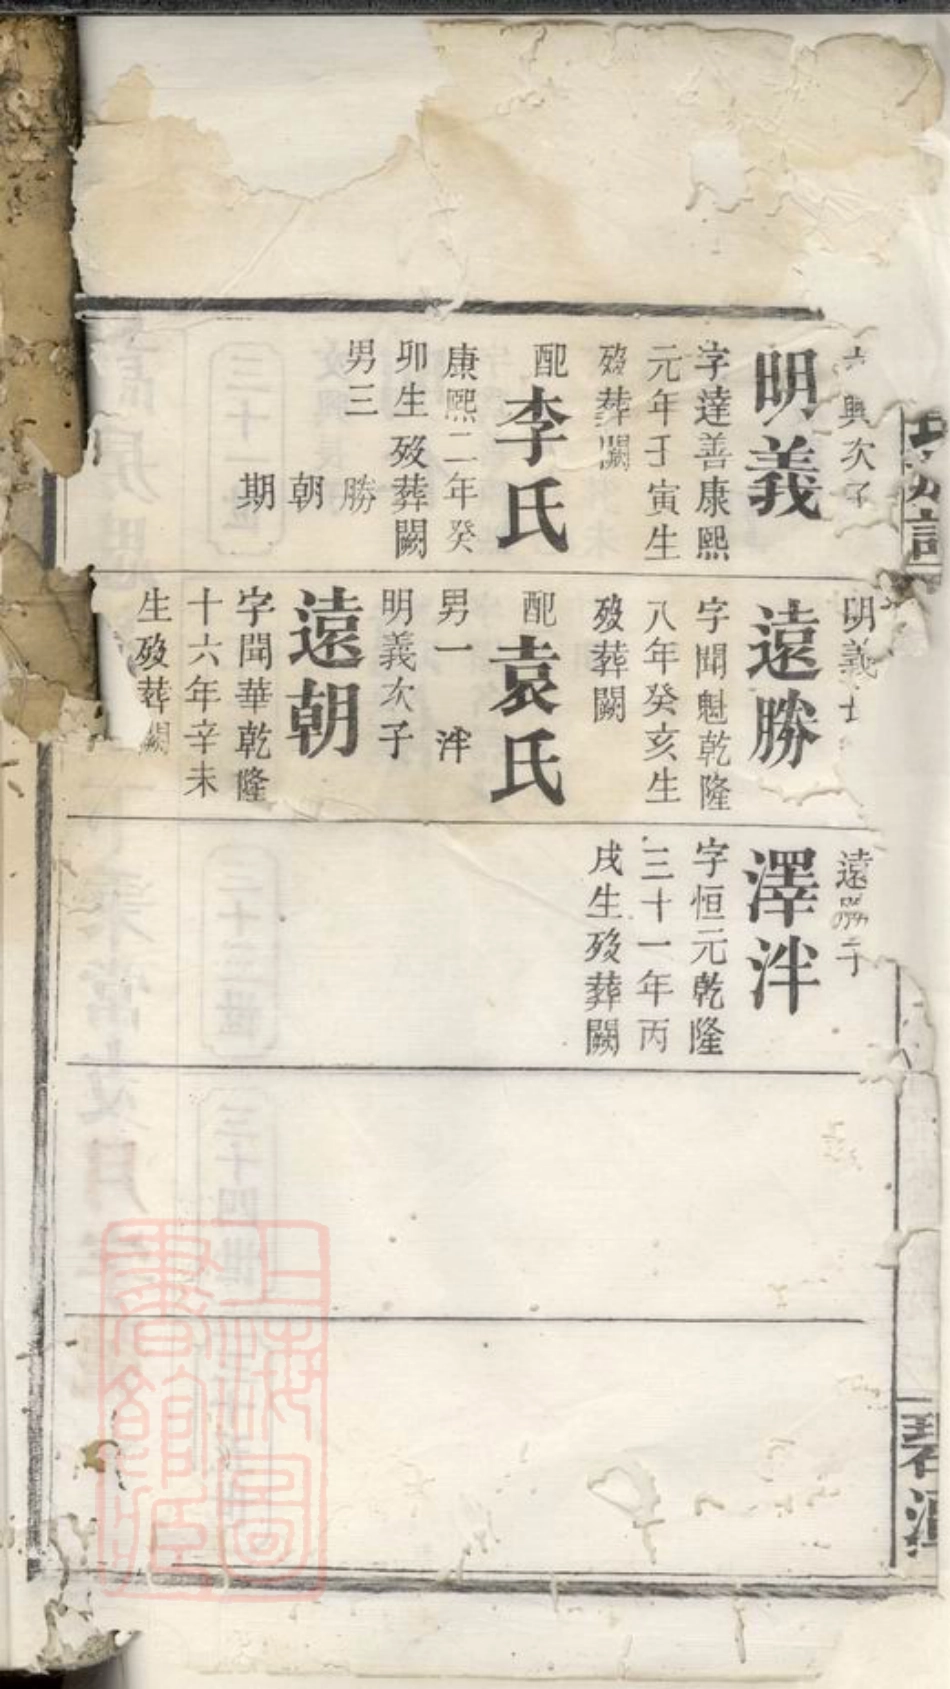 興次子
明義
字達善康熙
元年壬寅生
歿葬闕
配李氏
康熙二年癸
卯生歿葬闕
男三 勝
朝
期
明義
遠勝
字聞魁乾隆
八年癸亥生
歿葬闕
配袁氏
男一 泮
明義次子
遠朝
字聞華乾隆
十六年辛未
生歿葬闕
遠勝子
澤泮
字恒元乾隆
三十一年丙
戌生歿葬闕
上海圖
書館藏